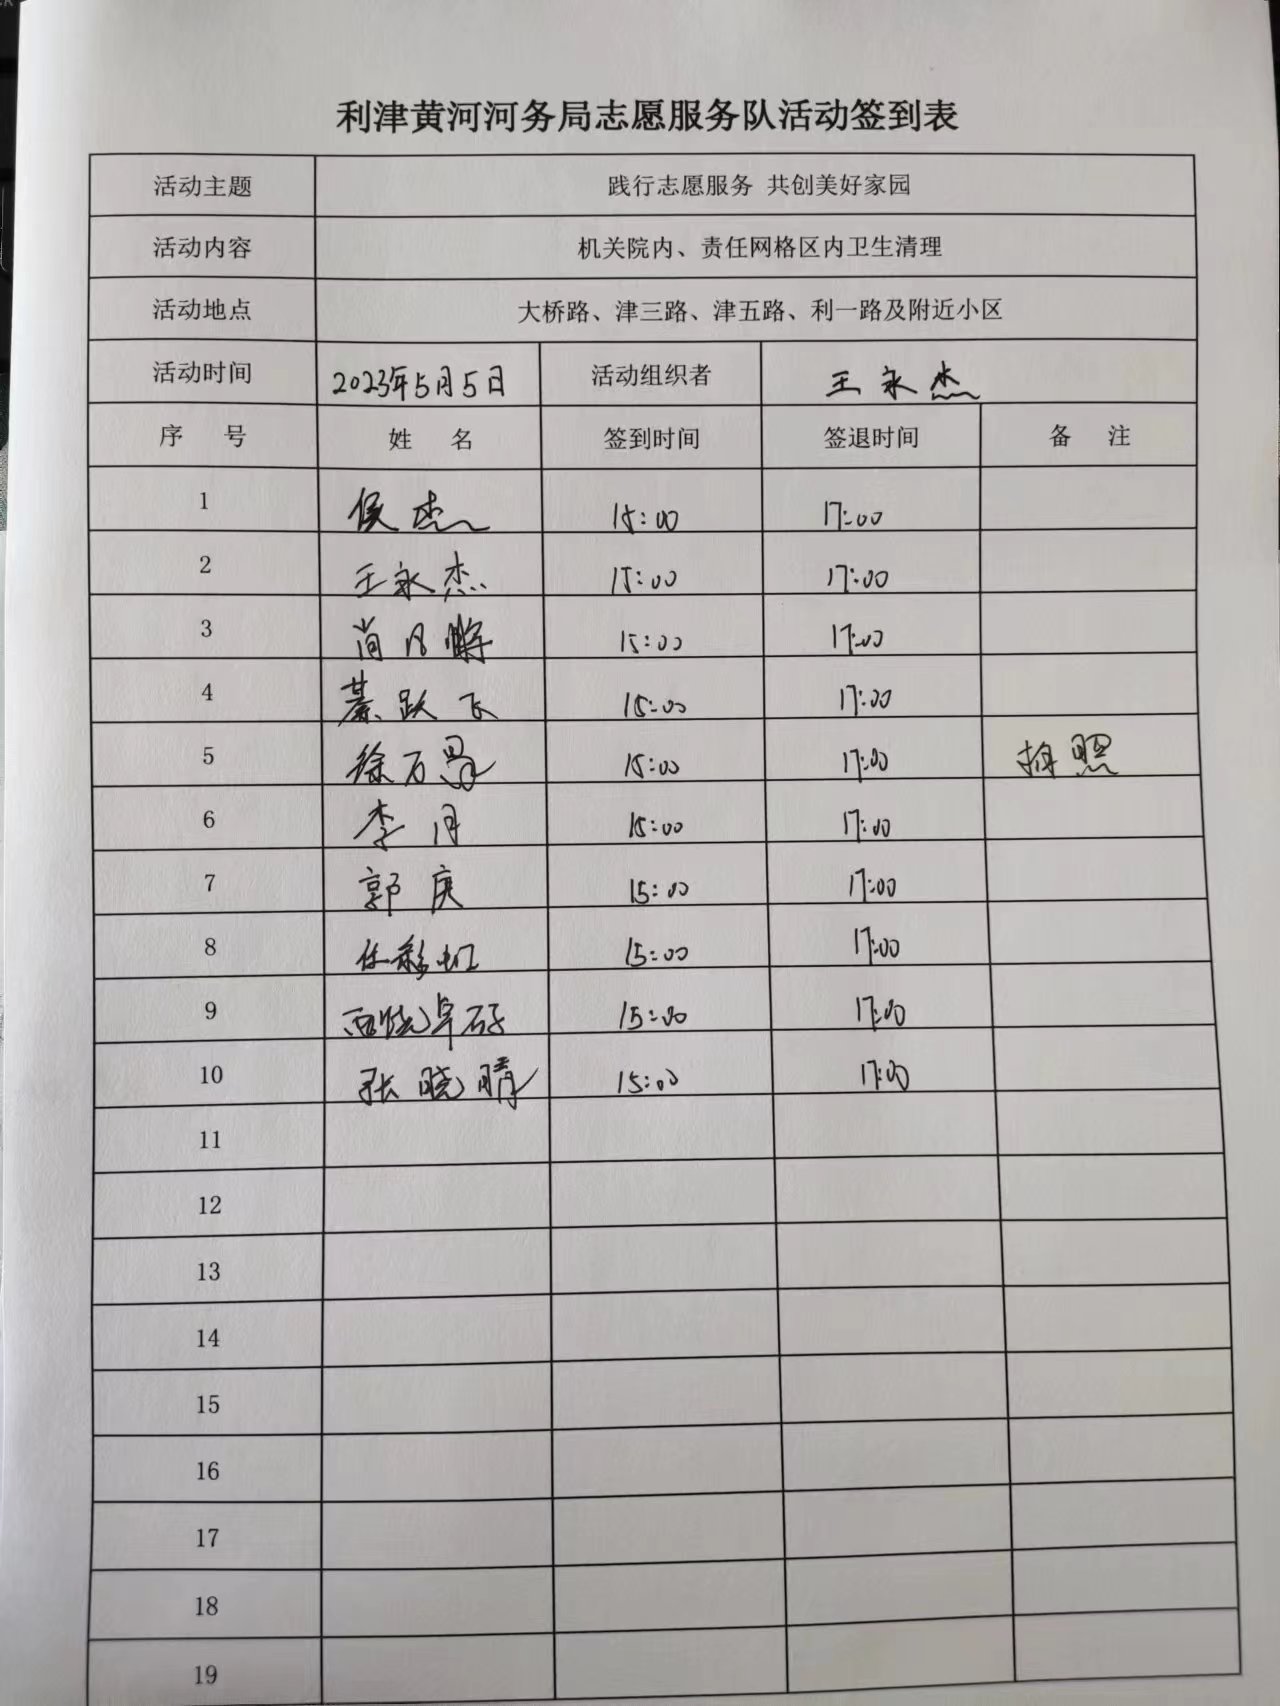 利津黄河河务局志愿服务队活动签到表
活动主题 践行志愿服务 共创美好家园
活动内容 机关院内、责任网格区内卫生清理
活动地点 大桥路、津三路、津五路、利一路及附近小区
活动时间 2023年5月5日 活动组织者 王永杰
序 号 姓 名 签到时间 签退时间 备 注
1 侯杰 15:00 17:00
2 王永杰 15:00 17:00
3 尚 鹏 15:00 17:00
4 綦跃飞 15:00 17:00
5 徐万 15:00 17:00 拍照
6 李月 15:00 17:00
7 郭庚 15:00 17:00
8 任彩虹 15:00 17:00
9 15:00 17:00
10 张晓晴 15:00 17:00
11
12
13
14
15
16
17
18
19